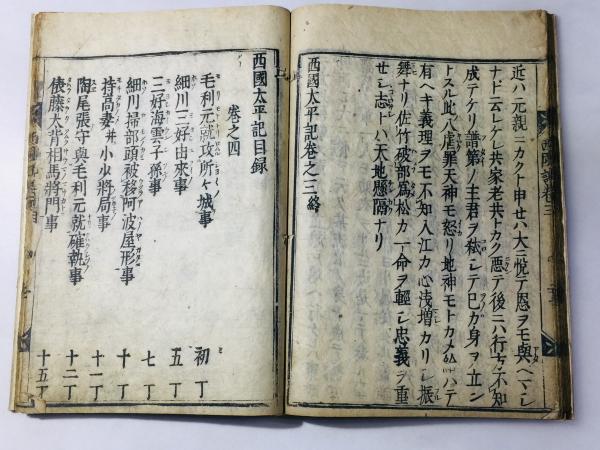 近ハ元親ニカクト申セハ大ニ悦テ恩ヲモ與ヘマシ
ナド云レケレ共家老共トカク悪テ後ニハ行方不知
成テケリ譜第ノ主君ヲ弑シテ己ガ身ヲ立ン
トスル此八虐罪天神モ怒リ地神モトカメ給ハテ
有ヘキ義理ヲモ不知入江カ心浅増カリシ振
舞ナリ佐竹破部為松カ一命ヲ輕シ忠義ヲ重
セシ志トハ天地懸隔ナリ
西國太平記巻之三終
西國太平記目録
巻之四
毛利元就攻所々城事 初丁
細川三好由來事 五丁
三好海雲子孫事 七丁
細川掃部頭被移阿波屋形事 十丁
持高妻并小少將局事 十一丁
陶尾張守與毛利元就確執事 十二丁
俵藤太背相馬將門事 十五丁